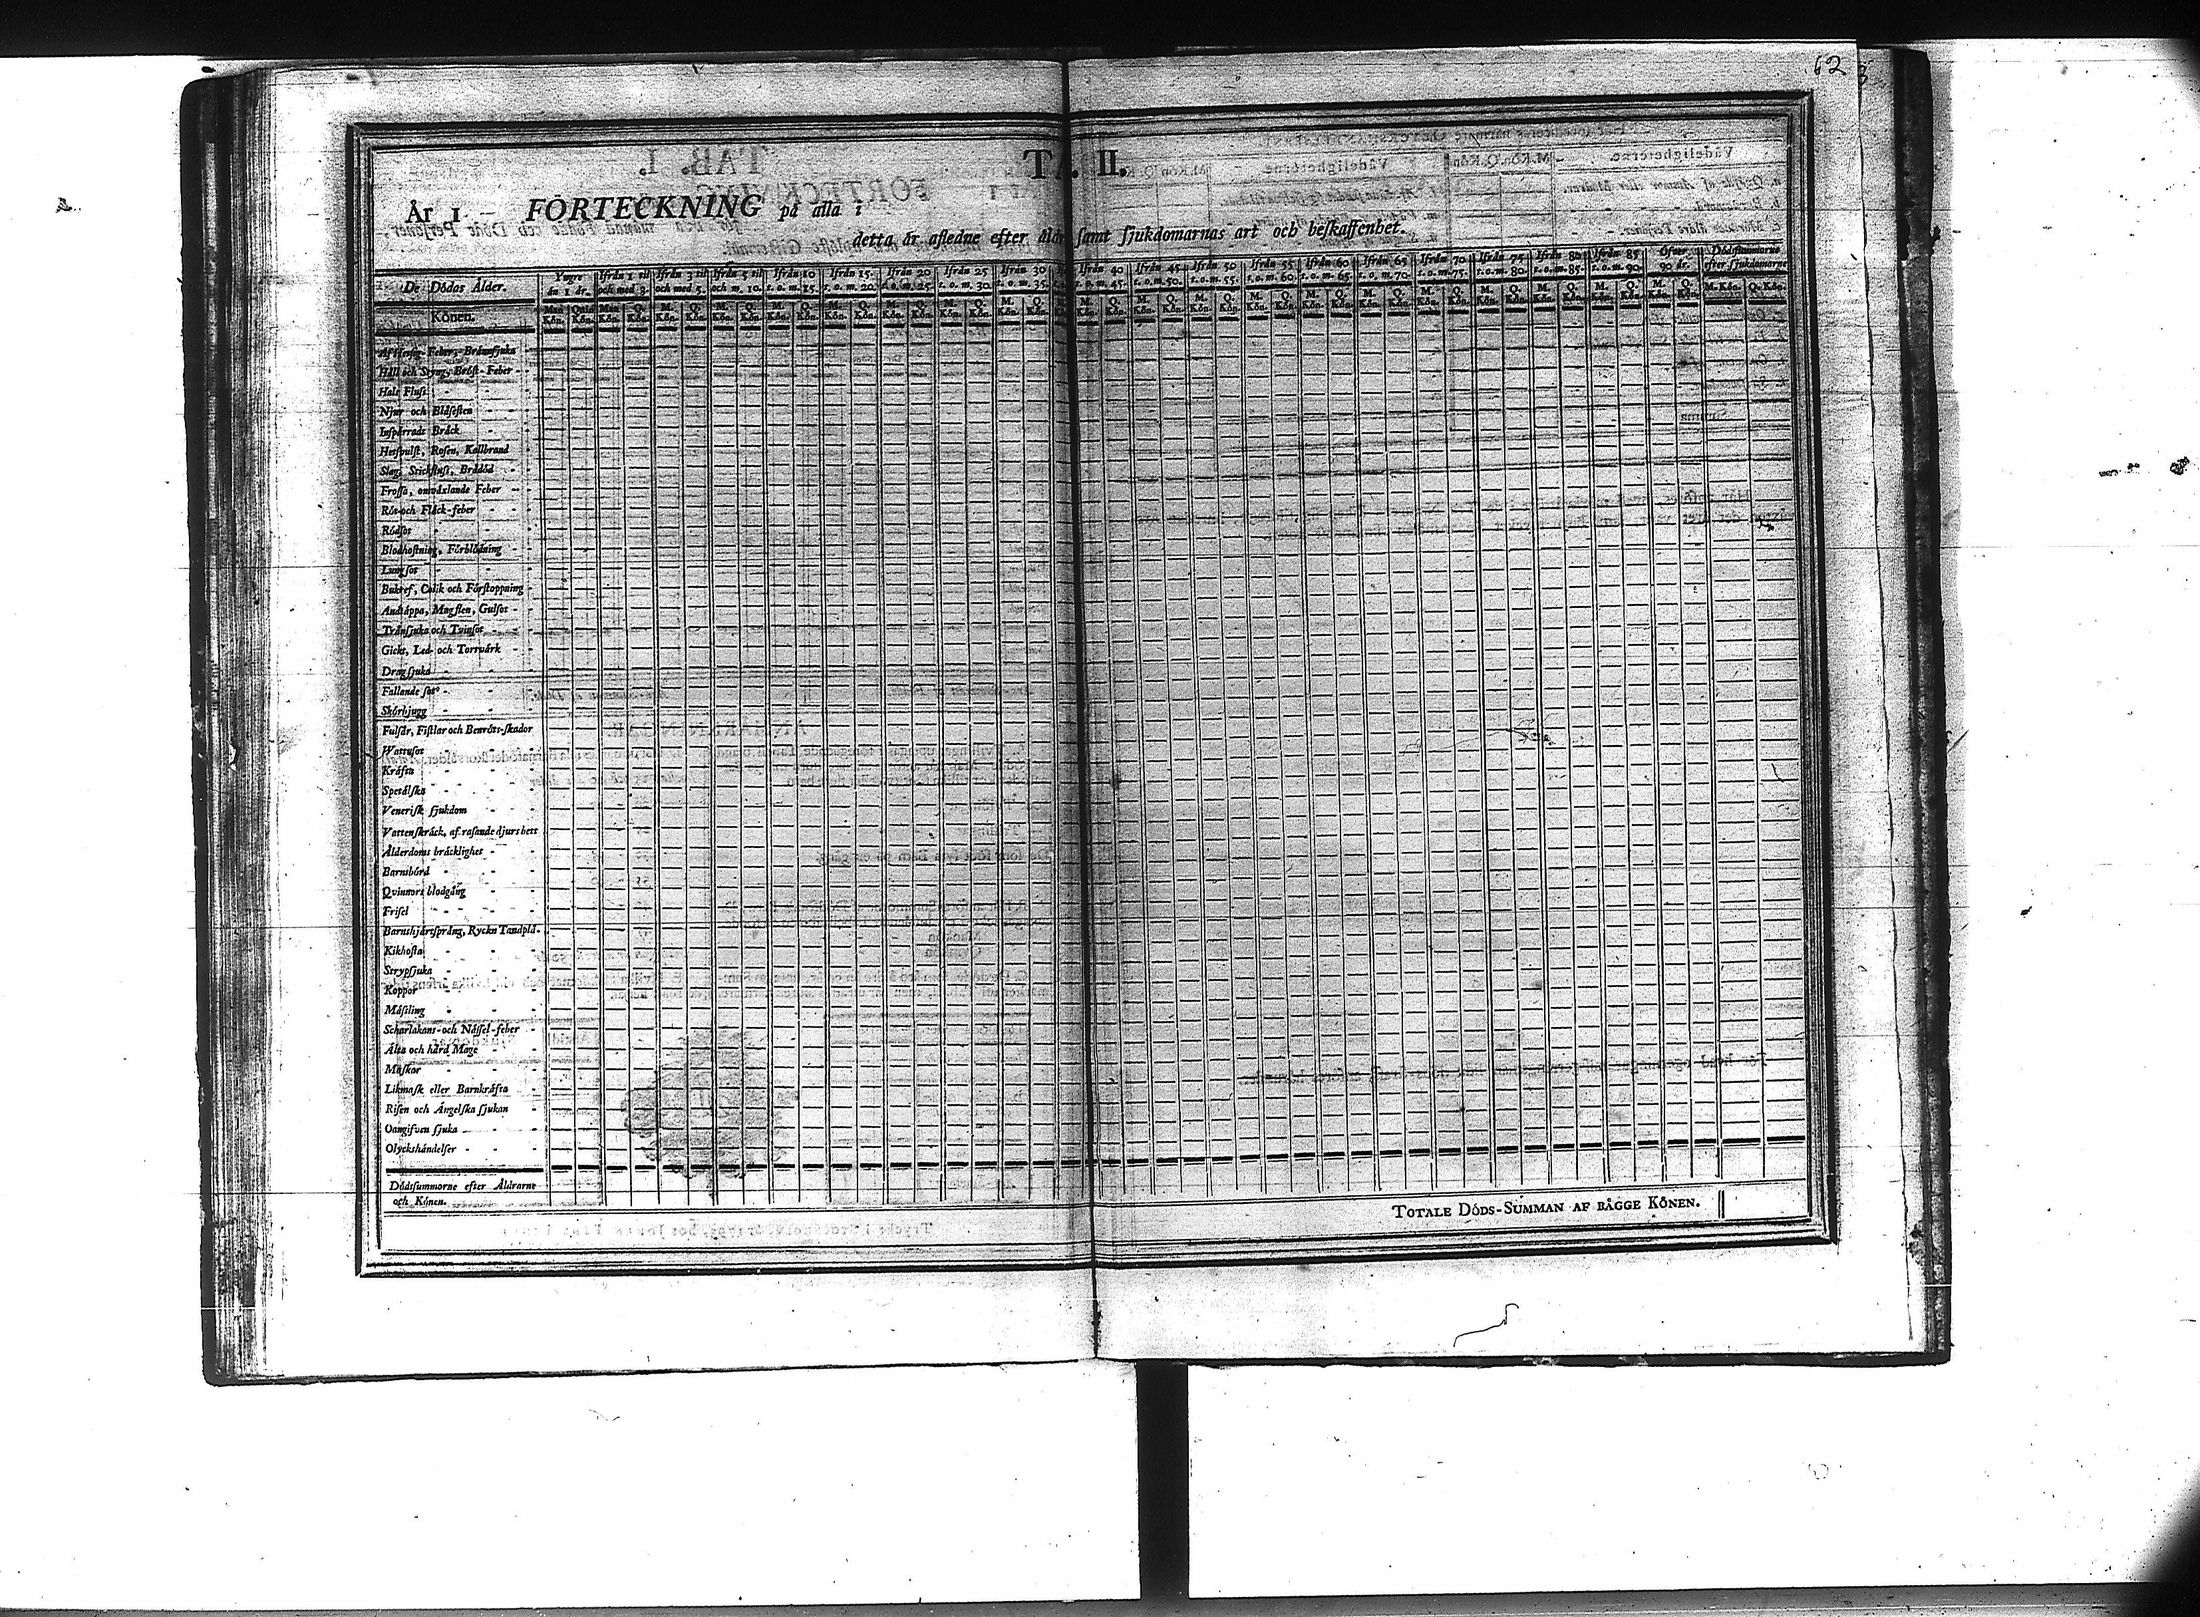 62
TAB. II.
År 1 FÖRTECKNING på alla i
detta år afledne efter ålder samt ſjukdomarnas art och beſkaffenhet.
De Dödas Ålder. Yngre än 1 år. Ifrån 1 til och med 3. Ifrån 3 til och med 5. Ifrån 5 til och m. 10. Ifrån 10 t. o. m. 15. Ifrån 15. t. o. m. 20. Ifrån 20 t. o. m. 25. Ifrån 25 t. o. m. 30. Ifrån 30 t. o. m. 35. Ifrån 40 t. o. m. 45. Ifrån 45 t. o. m. 50. Ifrån 50 t. o. m. 55. Ifrån 55 t. o. m. 60. Ifrån 60 t. o. m. 65. Ifrån 65 t. o. m. 70. Ifrån 70 t. o. m. 75. Ifrån 75 t. o. m. 80. Ifrån 80 t. o. m. 85. Ifrån 85 t. o. m. 90. Öfver 90 år. Dödſſummorne efter ſjukdomarne
Könen. M. Kön. Q. Kön.
Håll och Styng, Bröſt-Feber
Hals Fluſs
Njur och Blåſeſten
Inſpärradt Bråck
Hetſvulſt, Roſen, Kallbrand
Slag, Stickfluſs, Brådöd
Froſſa, omväxlande Feber
Röt-och Fläck-feber
Rödſot
Blodhoſtning, Förblödning
Lungſot
Bukref, Colik och Förſtoppning
Andtäppa, Magſten, Gulſot
Tränſjuka och Tvinſot
Gickt, Led- och Torrvärk
Dragſjuka
Fallande ſot
Skörbjugg
Fulſår, Fiſtlar och Benröts-ſkador
Wattuſot
Kräfta
Spetälſka
Veneriſk ſjukdom
Vattenſkräck, af raſande djurs bett
Ålderdoms bräcklighet
Barnsbörd
Qvinnors blodgång
Friſel
Barnshjärtſprång, Ryckn Tandplå-
Kikhoſta
Strypſjuka
Koppor
Mäſsling
Scharlakans-och Näſſel-feber
Älta och hård Mage
Maſkar
Likmaſk eller Barnkräfta
Riſen och Ängelſka ſjukan
Oangifven ſjuka
Olyckshändelſer
Dödsſummorne efter Åldrarne
och Könen.
TOTALE DÖDS-SUMMAN AF BÅGGE KÖNEN.